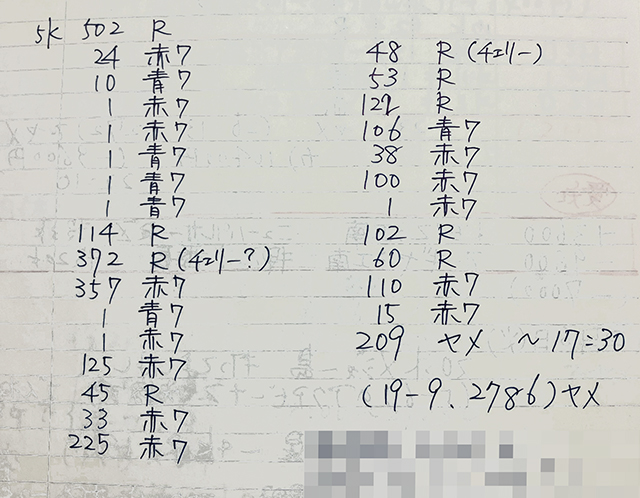 5k 502 R
24 赤7
10 青7
1 赤7
1 赤7
1 青7
1 青7
1 青7
114 R
372 R(チェリー?)
357 赤7
1 青7
1 赤7
125 赤7
45 R
33 赤7
225 赤7
48 R(チェリー)
53 R
122 R
106 青7
38 赤7
100 赤7
1 赤7
102 R
60 R
110 赤7
15 赤7
209 ヤメ ~17:30
(19-9、2786)ヤメ